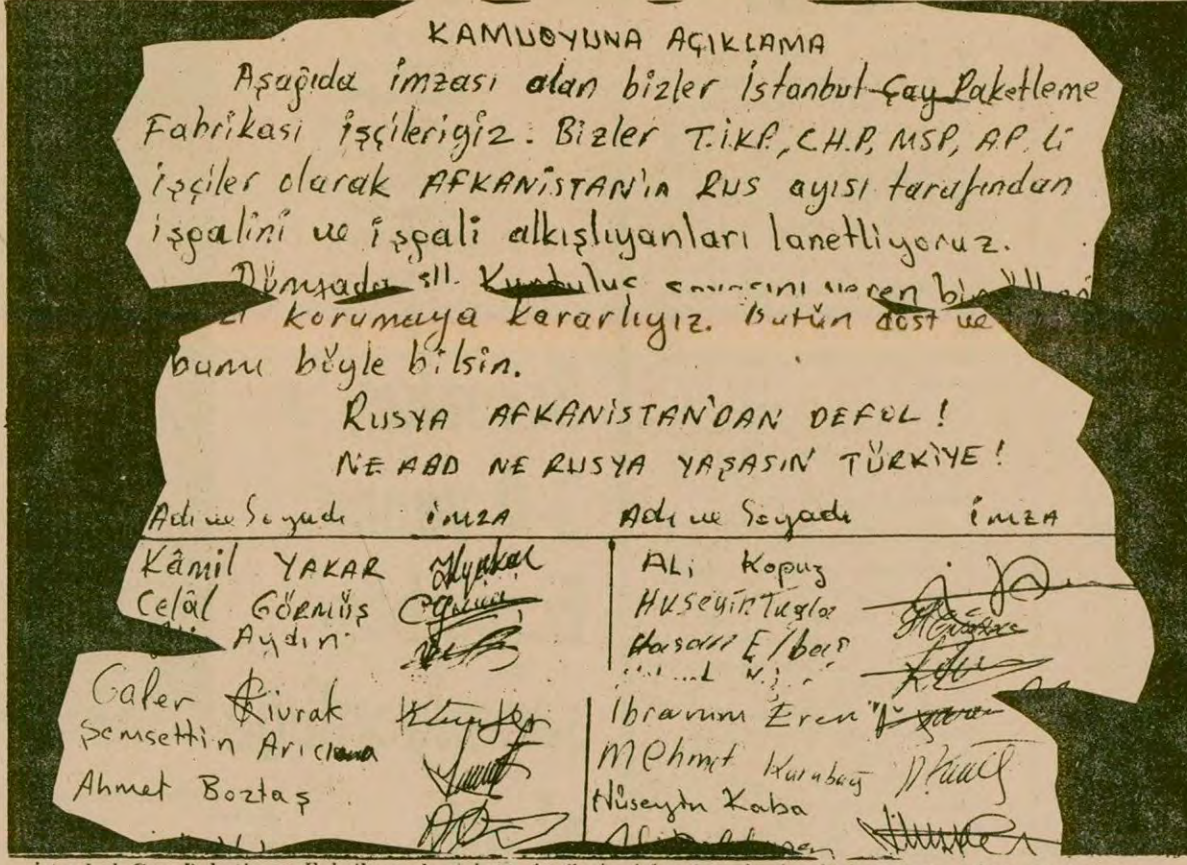 KAMUOYUNA AÇIKLAMA
Aşağıda imzası alan bizler İstanbul Çay Paketleme
Fabrikası işçileriyiz. Bizler T.İ.K.P., C.H.P, MSP, A.P. li
işçiler olarak AFKANİSTAN'ın RUS ayısı tarafından
işgalini ve işgali alkışlıyanları lanetliyoruz.
Dünyada Kurtuluş veren
korumaya kararlıyız. Bütün dost ve
bunu böyle bilsin.
RUSYA AFKANİSTAN'DAN DEFOL!
NE ABD NE RUSYA YAŞASIN TÜRKİYE!
Adı ve Soyadı İMZA Adı ve Soyadı İMZA
Kâmil YAKAR ALİ Kopuz
Celâl GÖRMÜŞ Hüseyin Tuğla
Aydın Hasan Elbaş
Cafer Kıvrak İbrahim Eren
Şemsettin Arıcı Mehmet Karabağ
Ahmet Boztaş Hüseyin Kaba